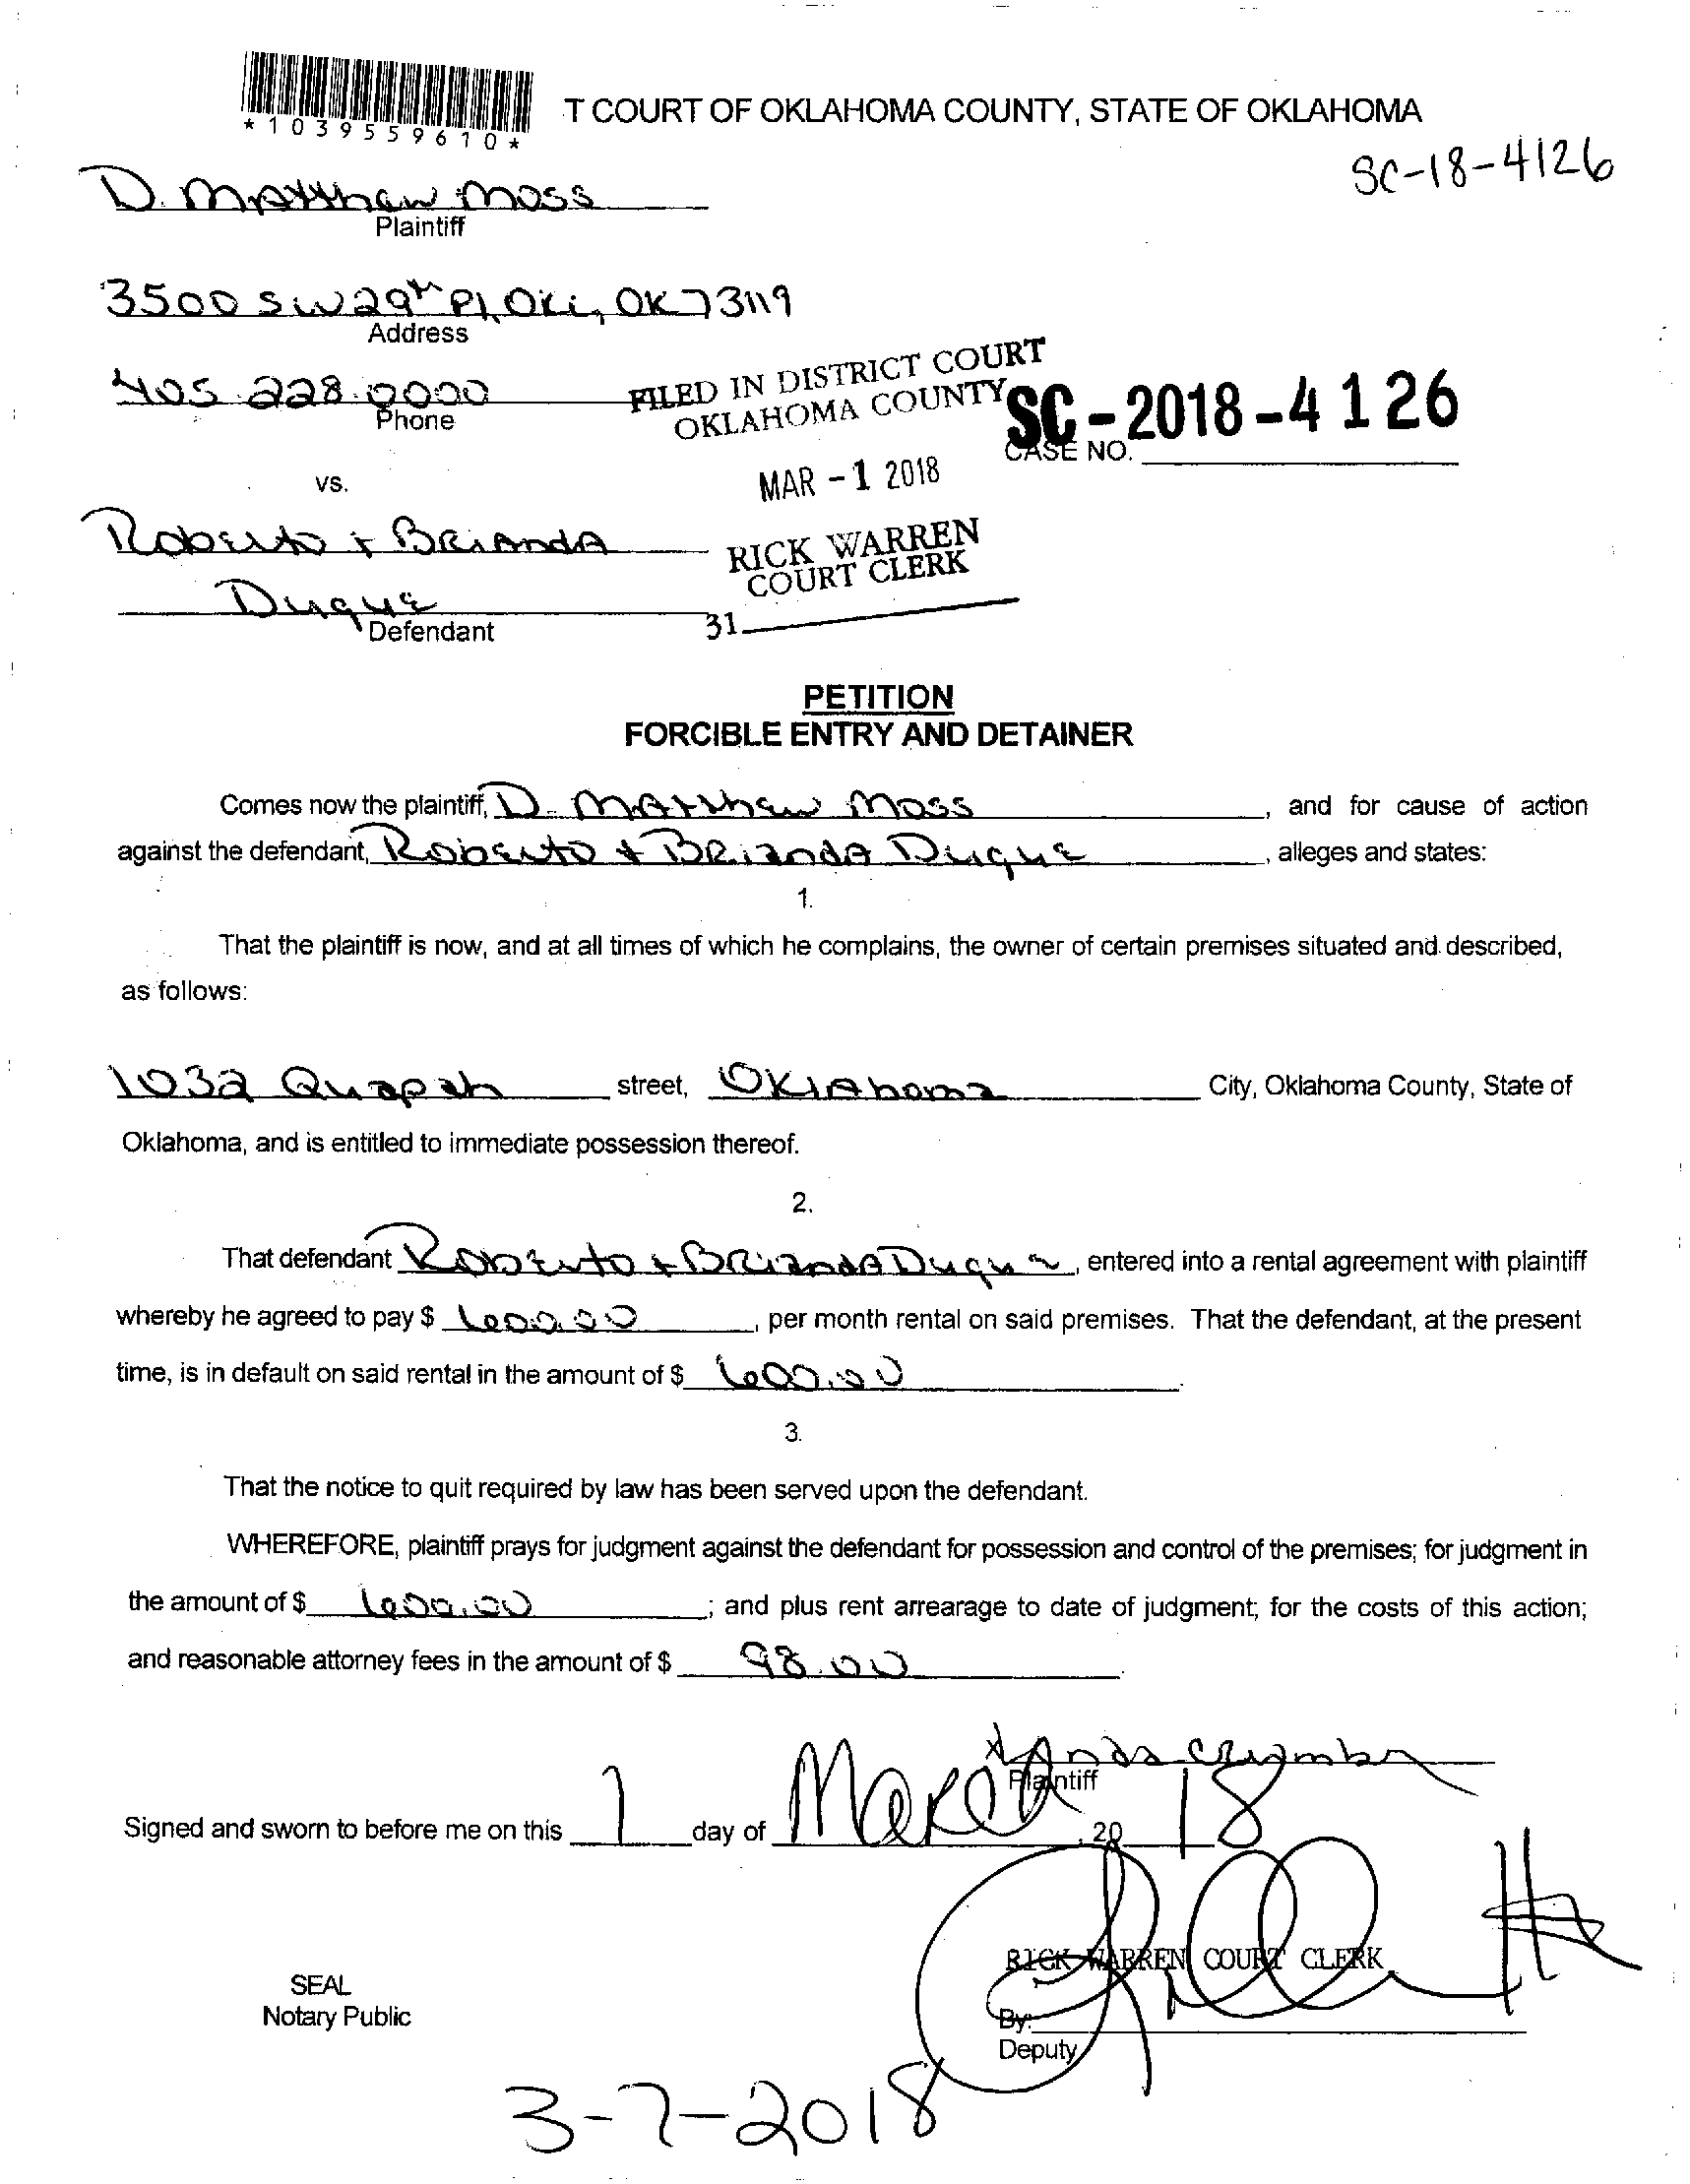 *1039559610*
T COURT OF OKLAHOMA COUNTY, STATE OF OKLAHOMA
SC-18-4126
D. Matthew Moss
Plaintiff
3500 SW 29th Pl, OKC, OK 73119
Address
405.228.0000
Phone
FILED IN DISTRICT COURT
OKLAHOMA COUNTY
SC-2018-4126
CASE NO.
MAR -1 2018
vs.
Roberto + Brianda
Duque
Defendant
RICK WARREN
COURT CLERK
31
PETITION
FORCIBLE ENTRY AND DETAINER
Comes now the plaintiff, D. Matthew Moss, and for cause of action
against the defendant, Roberto + Brianda Duque, alleges and states:
1.
That the plaintiff is now, and at all times of which he complains, the owner of certain premises situated and described,
as follows:
1032 Quapah street, Oklahoma City, Oklahoma County, State of
Oklahoma, and is entitled to immediate possession thereof.
2.
That defendant Roberto + Brianda Duque, entered into a rental agreement with plaintiff
whereby he agreed to pay $ 600.00, per month rental on said premises. That the defendant, at the present
time, is in default on said rental in the amount of $ 600.00.
3.
That the notice to quit required by law has been served upon the defendant.
WHEREFORE, plaintiff prays for judgment against the defendant for possession and control of the premises; for judgment in
the amount of $ 600.00; and plus rent arrearage to date of judgment; for the costs of this action;
and reasonable attorney fees in the amount of $ 98.00.
x
Plaintiff
Signed and sworn to before me on this 1 day of March, 2018
RICK WARREN COURT CLERK
SEAL
Notary Public
By:
Deputy
3-7-2018